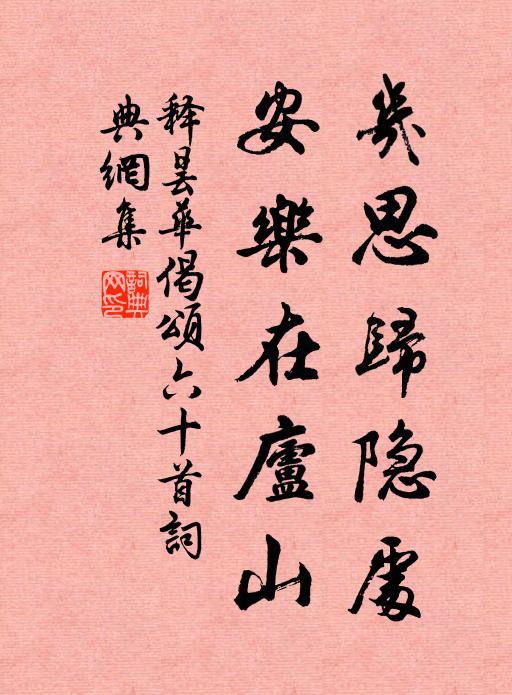 幾思歸隐處
安樂在廬山
释曇華偈頌六十首詞
典網集
詞典網印